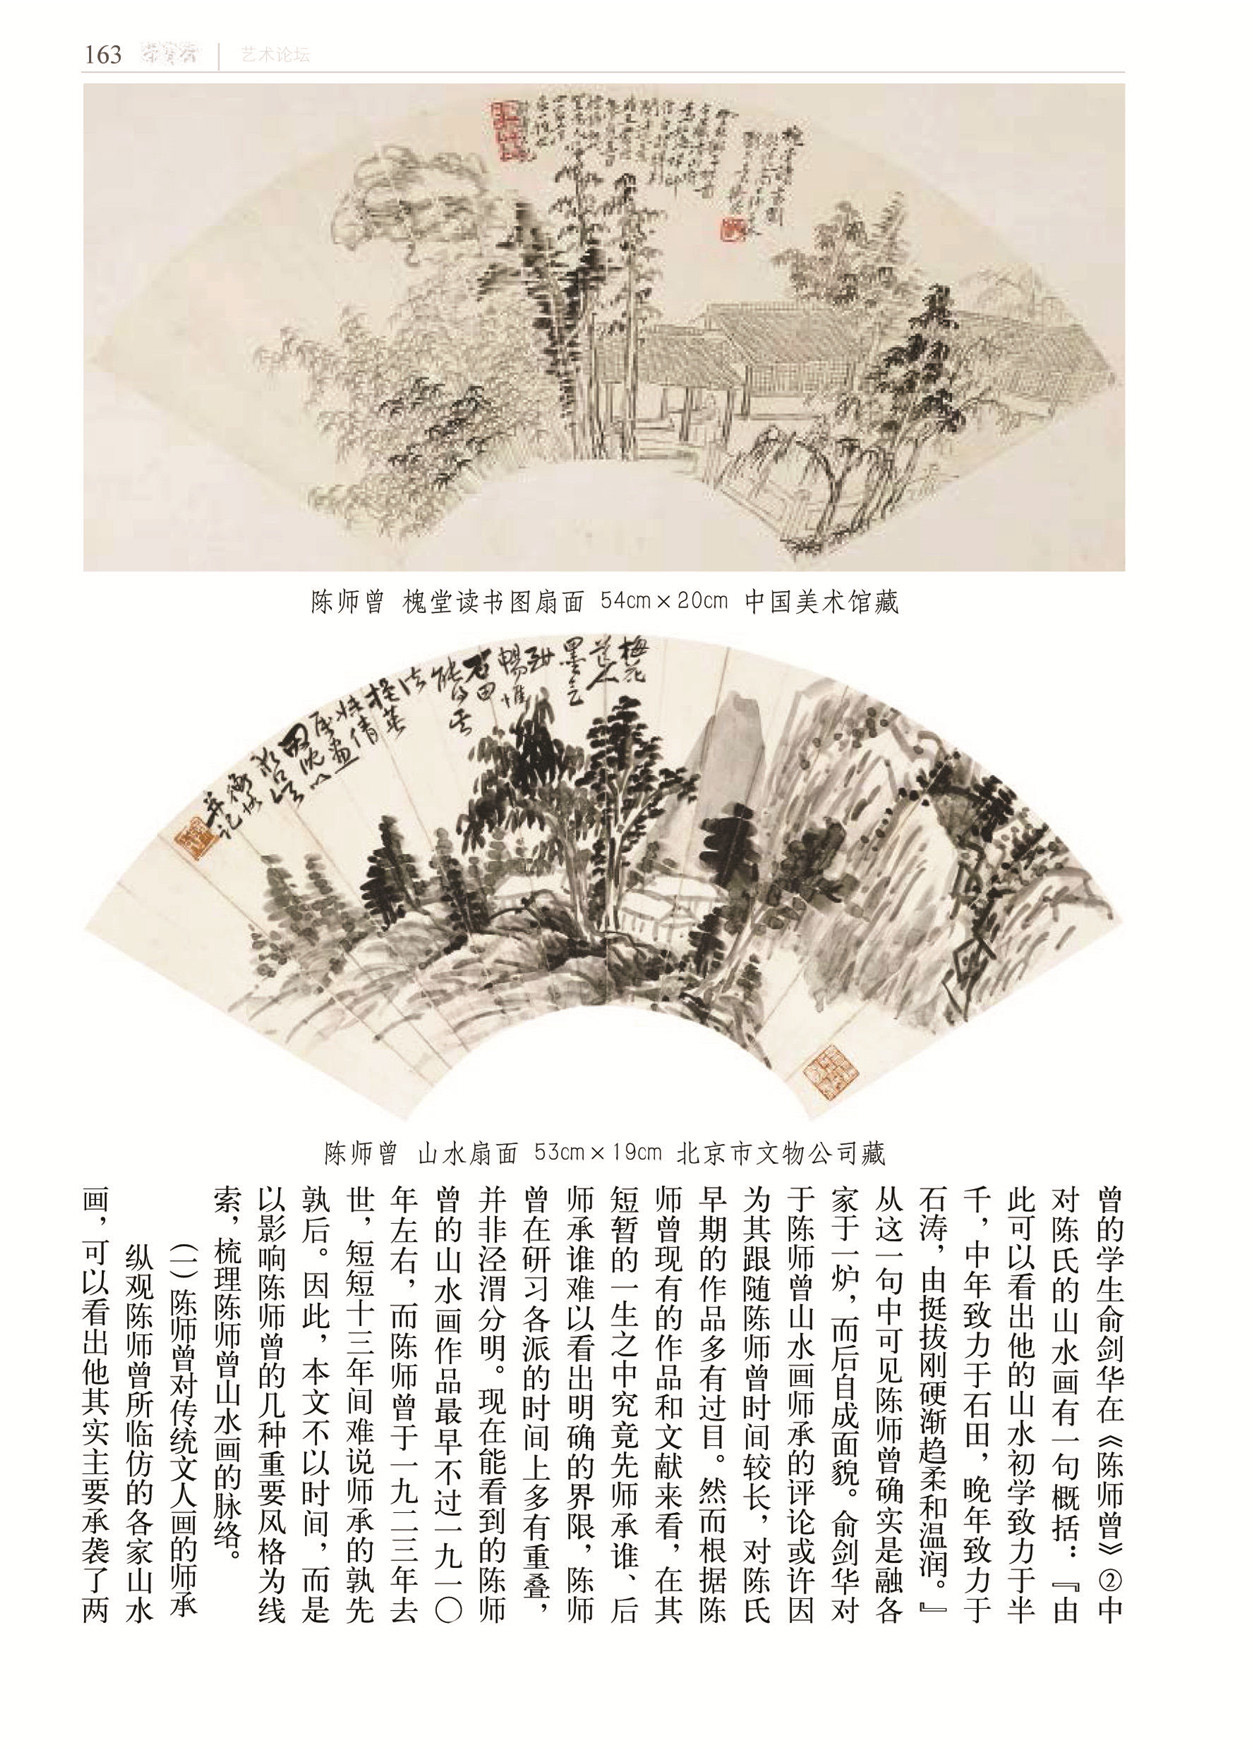 163 荣宝斋 艺术论坛
陈师曾 槐堂读书图扇面 54cm×20cm 中国美术馆藏
梅花
道人
墨气
酣
畅惟
石田
能得其
法
陈师曾 山水扇面 53cm×19cm 北京市文物公司藏
曾的学生俞剑华在《陈师曾》②中
对陈氏的山水画有一句概括：『由
此可以看出他的山水初学致力于半
千，中年致力于石田，晚年致力于
石涛，由挺拔刚硬渐趋柔和温润。』
从这一句中可见陈师曾确实是融各
家于一炉，而后自成面貌。俞剑华对
于陈师曾山水画师承的评论或许因
为其跟随陈师曾时间较长，对陈氏
早期的作品多有过目。然而根据陈
师曾现有的作品和文献来看，在其
短暂的一生之中究竟先师承谁、后
师承谁难以看出明确的界限，陈师
曾在研习各派的时间上多有重叠，
并非泾渭分明。现在能看到的陈师
曾的山水画作品最早不过一九一〇
年左右，而陈师曾于一九二三年去
世，短短十三年间难说师承的孰先
孰后。因此，本文不以时间，而是
以影响陈师曾的几种重要风格为线
索，梳理陈师曾山水画的脉络。
（一）陈师曾对传统文人画的师承
纵观陈师曾所临仿的各家山水
画，可以看出他其实主要承袭了两